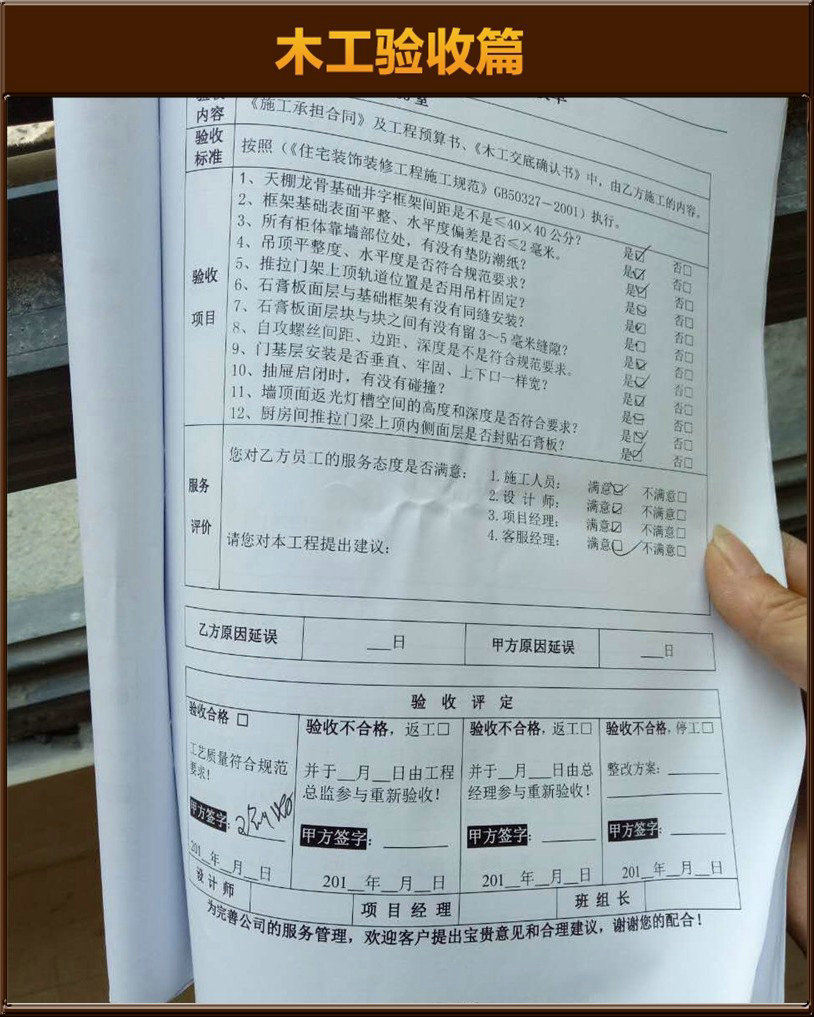 木工验收篇
内容
《施工承担合同》及工程预算书、《木工交底确认书》中，由乙方施工的内容。
验收标准
按照（《住宅装饰装修工程施工规范》GB50327－2001）执行。
验收项目
1、天棚龙骨基础井字框架间距是不是≤40×40公分？ 是☑ 否□
2、框架基础表面平整、水平度偏差是否≤2毫米。 是☑ 否□
3、所有柜体靠墙部位处，有没有垫防潮纸？ 是☑ 否□
4、吊顶平整度、水平度是否符合规范要求？ 是☑ 否□
5、推拉门架上顶轨道位置是否用吊杆固定？ 是☑ 否□
6、石膏板面层与基础框架有没有同缝安装？ 是□ 否□
7、石膏板面层块与块之间有没有留3～5毫米缝隙？ 是☑ 否□
8、自攻螺丝间距、边距、深度是不是符合规范要求。 是☑ 否□
9、门基层安装是否垂直、牢固、上下口一样宽？ 是☑ 否□
10、抽屉启闭时，有没有碰撞？ 是☑ 否□
11、墙顶面返光灯槽空间的高度和深度是否符合要求？ 是☑ 否□
12、厨房间推拉门梁上顶内侧面层是否封贴石膏板？ 是☑ 否□
服务评价
您对乙方员工的服务态度是否满意： 1.施工人员： 满意☑ 不满意□
2.设 计 师： 满意☑ 不满意□
3.项目经理： 满意☑ 不满意□
4.客服经理： 满意☑ 不满意□
请您对本工程提出建议：
乙方原因延误 ___日 甲方原因延误 ___日
验 收 评 定
验收合格 □
工艺质量符合规范
要求！
甲方签字：
201__年__月__日
验收不合格，返工□
并于__月__日由工程
总监参与重新验收！
甲方签字：______
201__年__月__日
验收不合格，返工□
并于__月__日由总
经理参与重新验收！
甲方签字：______
201__年__月__日
验收不合格，停工□
整改方案：______
甲方签字：______
201__年__月__日
设 计 师 项 目 经 理 班 组 长
为完善公司的服务管理，欢迎客户提出宝贵意见和合理建议，谢谢您的配合！